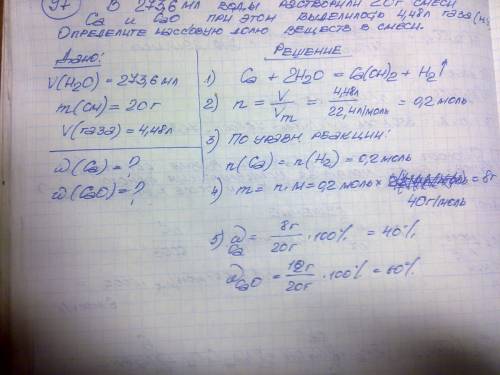 97 В 273,6 мл воды растворили 20 г смеси
Ca и CaO при этом выделилось 4,48л газа (H₂
Определите массовую долю веществ в смеси.
Дано:
V(H₂O) = 273,6 мл
m(см) = 20г
V(газа) = 4,48л
ω(Ca) = ?
ω(CaO) = ?
Решение
1) Ca + 2H₂O = Ca(OH)₂ + H₂↑
2) n = V/Vm = 4,48л/22,4л/моль = 0,2 моль
3) По уравн. реакции:
n(Ca) = n(H₂) = 0,2 моль
4) m = n·M = 0,2 моль × = 8г
40г/моль
5) ω Ca = 8г/20г · 100% = 40%
ω CaO = 12г/20г · 100% = 60%